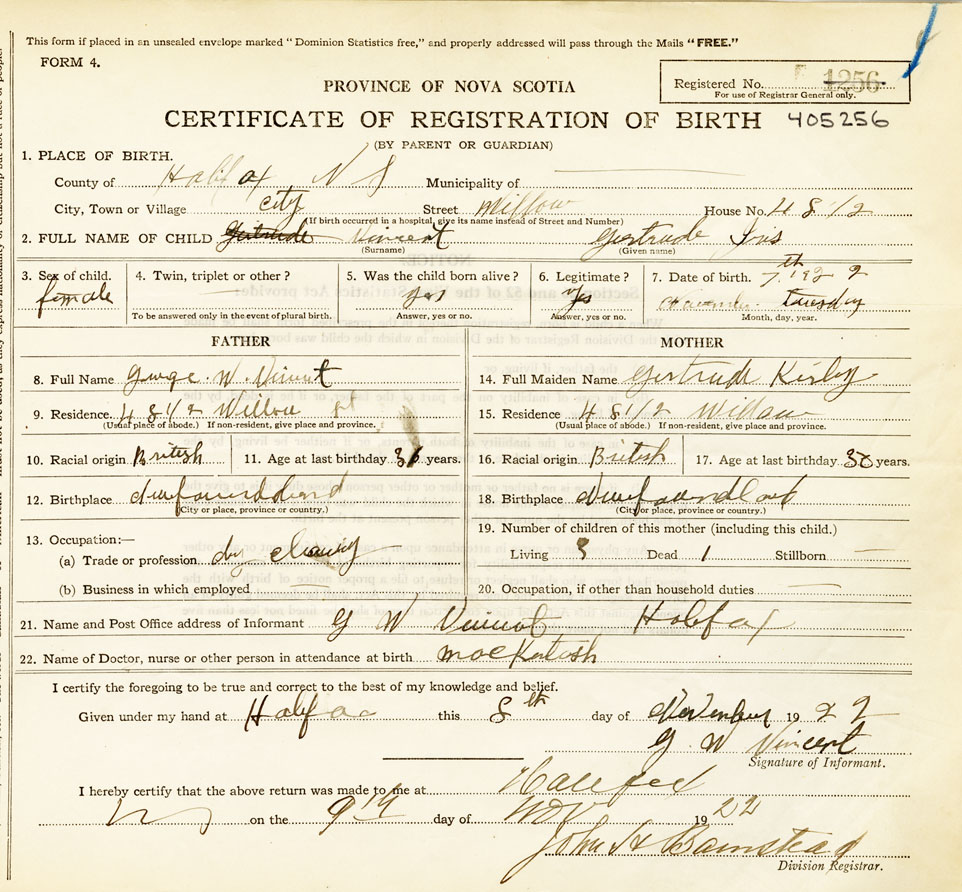 This form if placed in an unsealed envelope marked "Dominion Statistics free," and properly addressed will pass through the Mails "FREE."
FORM 4.
PROVINCE OF NOVA SCOTIA
Registered No. 1256
For use of Registrar General only.
CERTIFICATE OF REGISTRATION OF BIRTH 405256
(BY PARENT OR GUARDIAN)
1. PLACE OF BIRTH.
County of Halifax N S Municipality of
City, Town or Village city Street Willow House No. 48 1/2
(If birth occurred in a hospital, give its name instead of Street and Number)
2. FULL NAME OF CHILD Gertrude Vincent Gertrude Iris
(Surname) (Given name)
3. Sex of child. 4. Twin, triplet or other? 5. Was the child born alive? 6. Legitimate? 7. Date of birth. 7th 1922
female yes yes November tuesday
To be answered only in the event of plural birth. Answer, yes or no. Answer, yes or no. Month, day, year.
FATHER MOTHER
8. Full Name George . W. Vincent 14. Full Maiden Name Gertrude Kirby
9. Residence. 48 1/2 Willow st 15. Residence 48 1/2 Willow
(Usual place of abode.) If non-resident, give place and province. (Usual place of abode.) If non-resident, give place and province.
10. Racial origin British 11. Age at last birthday years. 16. Racial origin British 17. Age at last birthday 30 years.
12. Birthplace Newfoundland 18. Birthplace Newfoundland
(City or place, province or country.) (City or place, province or country.)
13. Occupation:— 19. Number of children of this mother (including this child.)
(a) Trade or profession dry Living 3 Dead 1 Stillborn
(b) Business in which employed 20. Occupation, if other than household duties
21. Name and Post Office address of Informant G W Vincent Halifax
22. Name of Doctor, nurse or other person in attendance at birth MacKintosh
I certify the foregoing to be true and correct to the best of my knowledge and belief.
Given under my hand at Halifax this 8th day of November 1922
G. W Vincent
Signature of Informant.
I hereby certify that the above return was made to me at Halifax
on the 9th day of Nov 1922
John H Barnstead
Division Registrar.